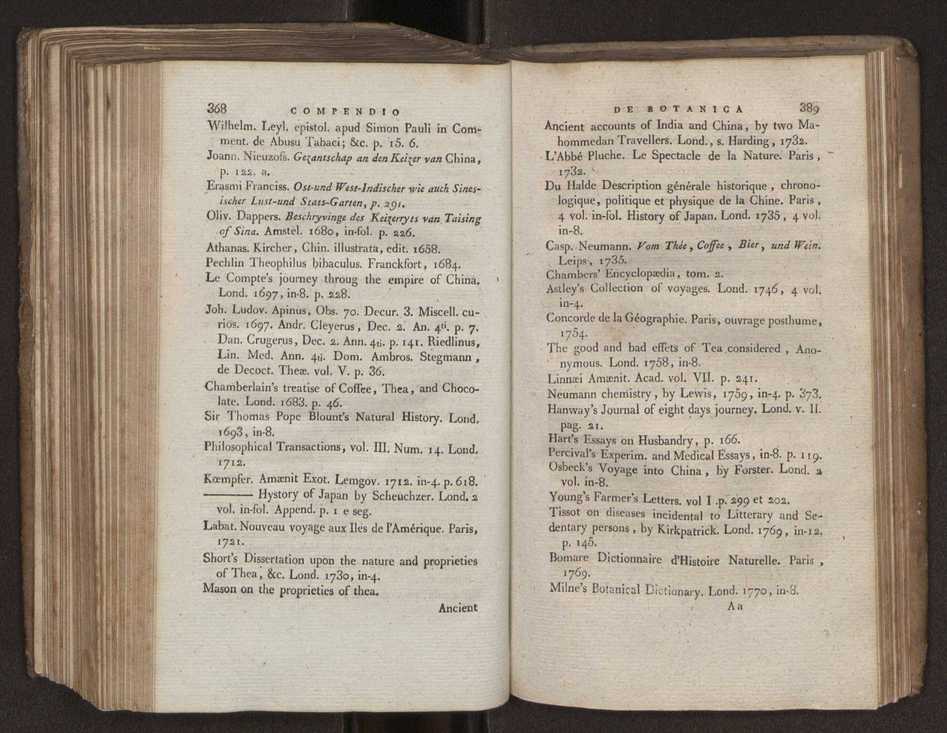 368 COMPENDIO
Wilhelm. Leyl. epistol. apud Simon Pauli in Com-
ment. de Abusu Tabaci; &c. p. 15. 6.
Joann. Nieuzofs. Gezantschap an den Keizer van China,
p. 122. a.
Erasmi Franciss. Ost-und West-Indischer wie auch Sines-
ischer Lust-und Stats-Garten, p. 291.
Oliv. Dappers. Beschryvinge des Keizerryts van Taising
of Sina. Amstel. 1680, in-fol. p. 226.
Athanas. Kircher, Chin. illustrata, edit. 1658.
Pechlin Theophilus bibaculus. Franckfort, 1684.
Le Compte's journey throug the empire of China.
Lond. 1697, in-8. p. 228.
Joh. Ludov. Apinus, Obs. 70. Decur. 3. Miscell. cu-
rios. 1697. Andr. Cleyerus, Dec. 2. An. 4ti. p. 7.
Dan. Crugerus, Dec. 2. Ann. 4ti. p. 141. Riedlinus,
Lin. Med. Ann. 4ti. Dom. Ambros. Stegmann,
de Decoct. Theæ. vol. V. p. 36.
Chamberlain's treatise of Coffee, Thea, and Choco-
late. Lond. 1683. p. 46.
Sir Thomas Pope Blount's Natural History. Lond.
1693, in-8.
Philosophical Transactions, vol. III. Num. 14. Lond.
1712.
Kœmpfer. Amænit Exot. Lemgov. 1712. in-4. p. 618.
——— Hystory of Japan by Scheuchzer. Lond. 2
vol. in-fol. Append. p. 1 e seg.
Labat. Nouveau voyage aux Iles de l'Amérique. Paris,
1721.
Short's Dissertation upon the nature and proprieties
of Thea, &c. Lond. 1730, in-4.
Mason on the proprieties of thea.
Ancient
DE BOTANICA 389
Ancient accounts of India and China, by two Ma-
hommedan Travellers. Lond., s. Harding, 1732.
L'Abbé Pluche. Le Spectacle de la Nature. Paris,
1732.
Du Halde Description générale historique, chrono-
logique, politique et physique de la Chine. Paris,
4 vol. in-fol. History of Japan. Lond. 1735, 4 vol.
in-8.
Casp. Neumann. Vom Thée, Coffee, Bier, und Wein.
Leips, 1735.
Chambers' Encyclopædia, tom. 2.
Astley's Collection of voyages. Lond. 1746, 4 vol.
in-4.
Concorde de la Géographie. Paris, ouvrage posthume,
1754.
The good and bad effets of Tea considered, Ano-
nymous. Lond. 1758, in-8.
Linnæi Amænit. Acad. vol. VII. p. 241.
Neumann chemistry, by Lewis, 1759, in-4. p. 373.
Hanway's Journal of eight days journey. Lond. v. II.
pag. 21.
Hart's Essays on Husbandry, p. 166.
Percival's Experim. and Medical Essays, in-8. p. 119.
Osbeck's Voyage into China, by Forster. Lond. 2
vol. in-8.
Young's Farmer's Letters. vol I .p. 299 et 202.
Tissot on diseases incidental to Litterary and Se-
dentary persons, by Kirkpatrick. Lond. 1769, in-12.
p. 145.
Bomare Dictionnaire d'Histoire Naturelle. Paris,
1769.
Milne's Botanical Dictionary. Lond. 1770, in-8.
Aa